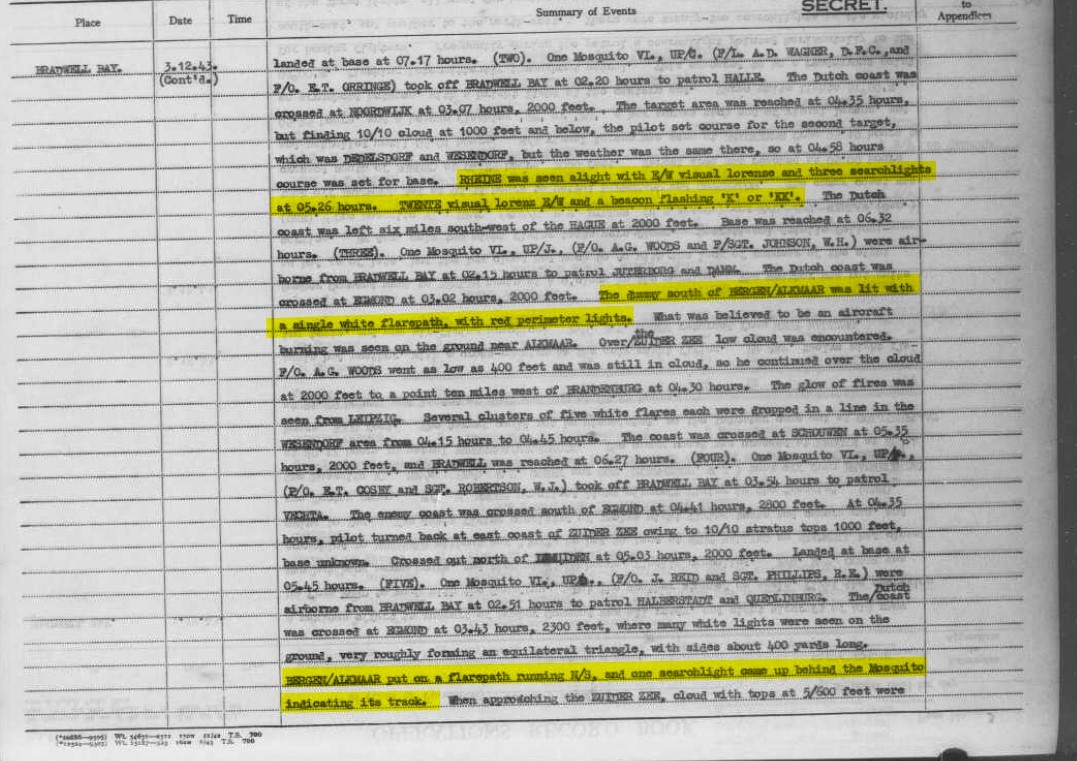 SECRET.
Place Date Time Summary of Events to Appendices
BRADWELL BAY. 3.12.43. (Cont'd.)
landed at base at 07.17 hours. (TWO). One Mosquito VI., UP/C. (F/L. A.D. WAGNER, D.F.C., and
F/O. E.T. ORRINGE) took off BRADWELL BAY at 02.20 hours to patrol HALLE. The Dutch coast was
crossed at NOORDWIJK at 03.07 hours, 2000 feet. The target area was reached at 04.35 hours,
but finding 10/10 cloud at 1000 feet and below, the pilot set course for the second target,
which was DEDELSDORF and WESENDORF, but the weather was the same there, so at 04.58 hours
course was set for base. RHEINE was seen alight with E/W visual lorense and three searchlights
at 05.26 hours. TWENTE visual lorenz E/W and a beacon flashing 'K' or 'KK'. The Dutch
coast was left six miles south-west of the HAGUE at 2000 feet. Base was reached at 06.32
hours. (THREE). One Mosquito VI., UP/J., (F/O. A.G. WOODS and F/SGT. JOHNSON, W.H.) were air-
borne from BRADWELL BAY at 02.15 hours to patrol JUTERBORG and DAMM. The Dutch coast was
crossed at EGMOND at 03.02 hours, 2000 feet. The dummy south of BERGEN/ALKMAAR was lit with
a single white flarepath, with red perimeter lights. What was believed to be an aircraft
burning was seen on the ground near ALKMAAR. Over/the ZUIDER ZEE low cloud was encountered.
F/O. A.G. WOODS went as low as 400 feet and was still in cloud, so he continued over the cloud
at 2000 feet to a point ten miles west of BRANDENBURG at 04.30 hours. The glow of fires was
seen from LEIPZIG. Several clusters of five white flares each were dropped in a line in the
WESENDORF area from 04.15 hours to 04.45 hours. The coast was crossed at SCHOUWEN at 05.35
hours, 2000 feet, and BRADWELL was reached at 06.27 hours. (FOUR). One Mosquito VI., UP/
(F/O. E.T. COSBY and SGT. ROBERTSON, W.J.) took off BRADWELL BAY at 03.54 hours to patrol
VECHTA. The enemy coast was crossed south of EGMOND at 04.41 hours, 2800 feet. At 04.35
hours, pilot turned back at east coast of ZUIDER ZEE owing to 10/10 stratus tops 1000 feet,
base unknown. Crossed out north of IJMUIDEN at 05.03 hours, 2000 feet. Landed at base at
05.45 hours. (FIVE). One Mosquito VI., UP/ (F/O. J. REID and SGT. PHILLIPS, R.E.) were
airborne from BRADWELL BAY at 02.51 hours to patrol HALBERSTADT and QUEDLINBURG. The/Dutch coast
was crossed at EGMOND at 03.43 hours, 2300 feet, where many white lights were seen on the
ground, very roughly forming an equilateral triangle, with sides about 400 yards long.
BERGEN/ALKMAAR put on a flarepath running N/S, and one searchlight came up behind the Mosquito
indicating its track. When approaching the ZUIDER ZEE, cloud with tops at 5/600 feet were